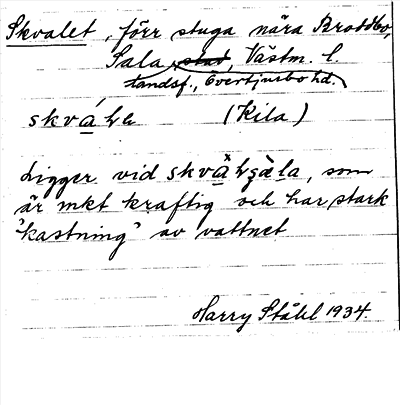 Skvalet, förr stuga nära Broddbo,
Sala stad, Västm. l.
landsf., Övertjurbo hd.
skvála (Kila)
Ligger vid skvàlgäla, som
är mkt kraftig och har stark
"kastning" av vattnet
Harry Ståhl 1934.